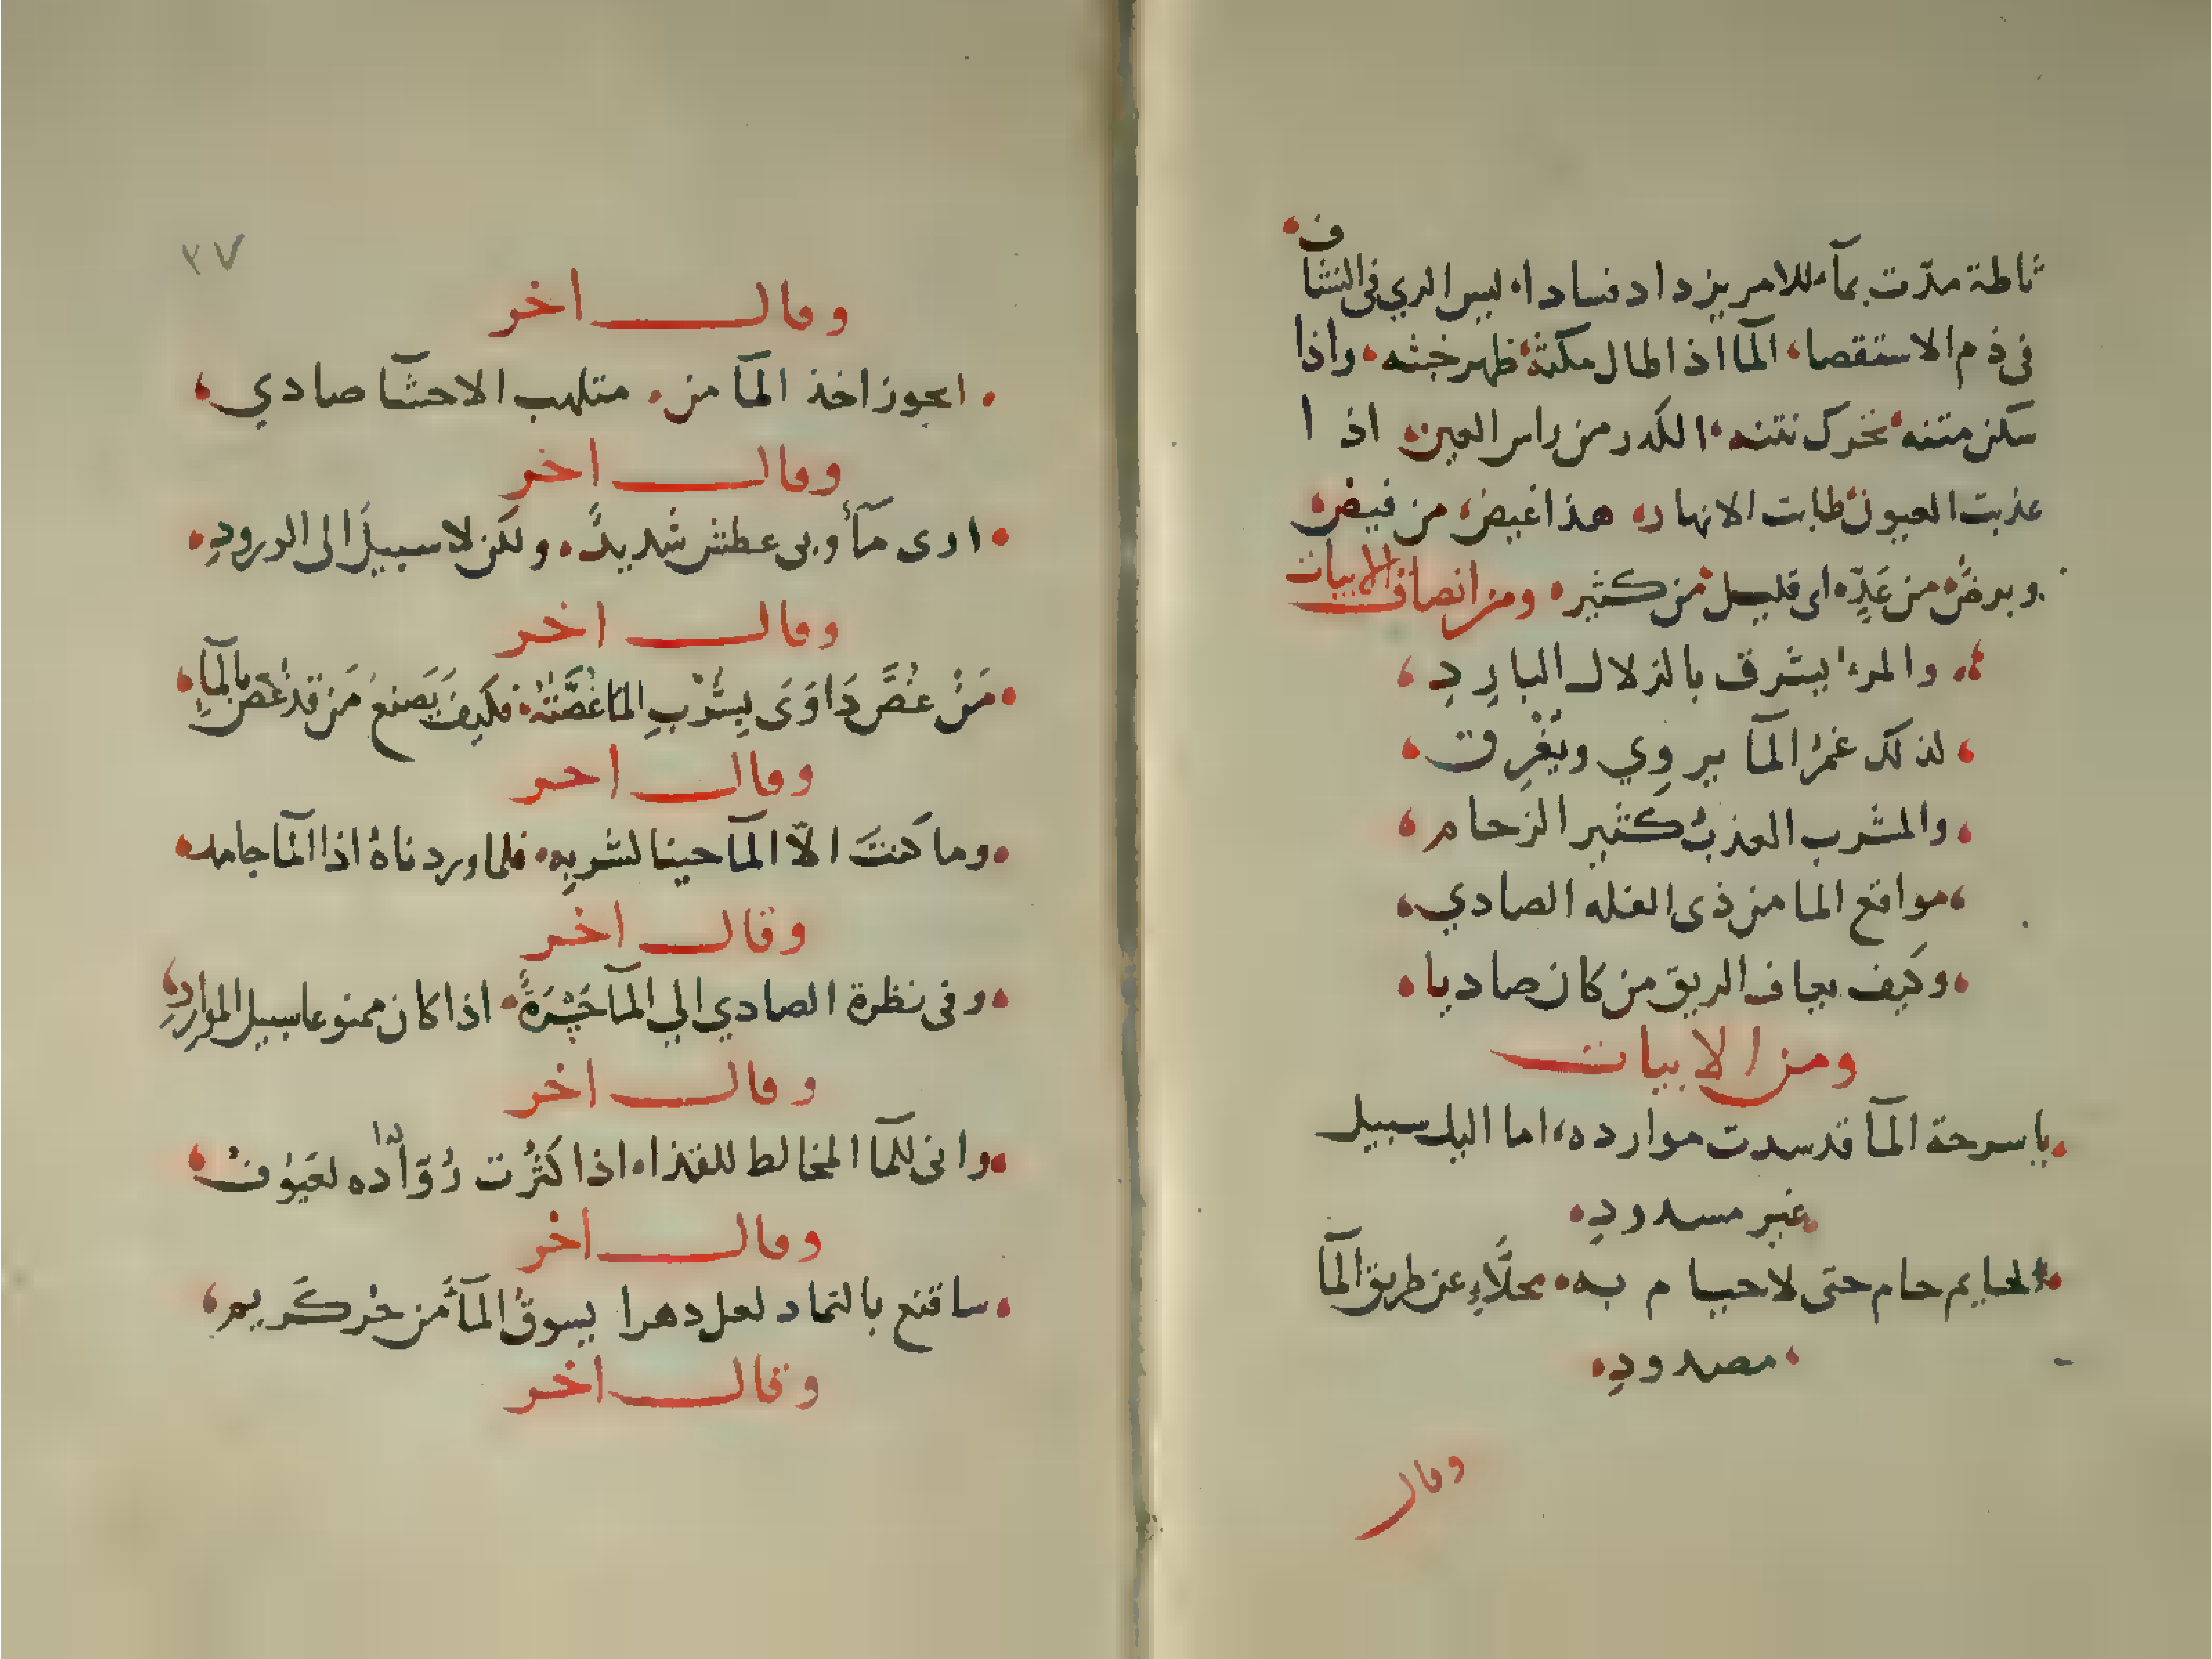 ثاطة مدّت بمآء للامر يزداد فسادا، ليس الري في التشاف
في ذم الاستقصا، المآ اذا طال مكثه ظهر خبثه، واذا
سكن متنه تحرك نتنه، الكدر من راس العين، اذا
عذبت العيون طابت الانهار، هذا غيض، من فيض،
وبرضٌ من عَدِّه اى قليل من كثير، ومن انصاف الابيات
والمرءُ يشرق بالزلال البارِدِ
لذلك غمرُ المآ يروِي ويُغْرِق
والمشرب العذبُ كثير الزحام
مواقع الما من ذى الغله الصادي
وكيف يعاف الريق من كان صاديا
ومن الابيات
يا سرحة المآ قد سدت موارده، اما اليك سبيل
غير مسدودِ
لحايم حام حتى لا حيام به، محلَّاءٍ عن طريق المآ
مصدودِ
وقال
٣٧
وقال اخر
ايجوز اخذ المآ من، متلهب الاحشآ صادي
وقال اخر
ارى مآً وبى عطش شديدٌ، ولكن لا سبيلَ الى الورودِ
وقال اخر
مَنْ غصَّ دَاوَى بِشُربِ الما غُصَّتَهُ، فكيفَ يَصنعُ مَن قد غَصَّ بالمآءِ
وقال اخر
وما كنتَ الّا المآ حينا لشربِهِ، فلما وردناهُ اذا المآ جامد
وقال اخر
وفى نظرة الصادي الي المآ حَسْرَةً، اذا كان ممنوعا سبيل الموارِدِ
وقال اخر
وانى للمآ المخالط للقذا، اذا كثُرت رُوَّاده لعَيُوفُ
وقال اخر
ساقنع بالثماد لعل دهرا يسوقُ المآَ من حُر كَريم
وقال اخر